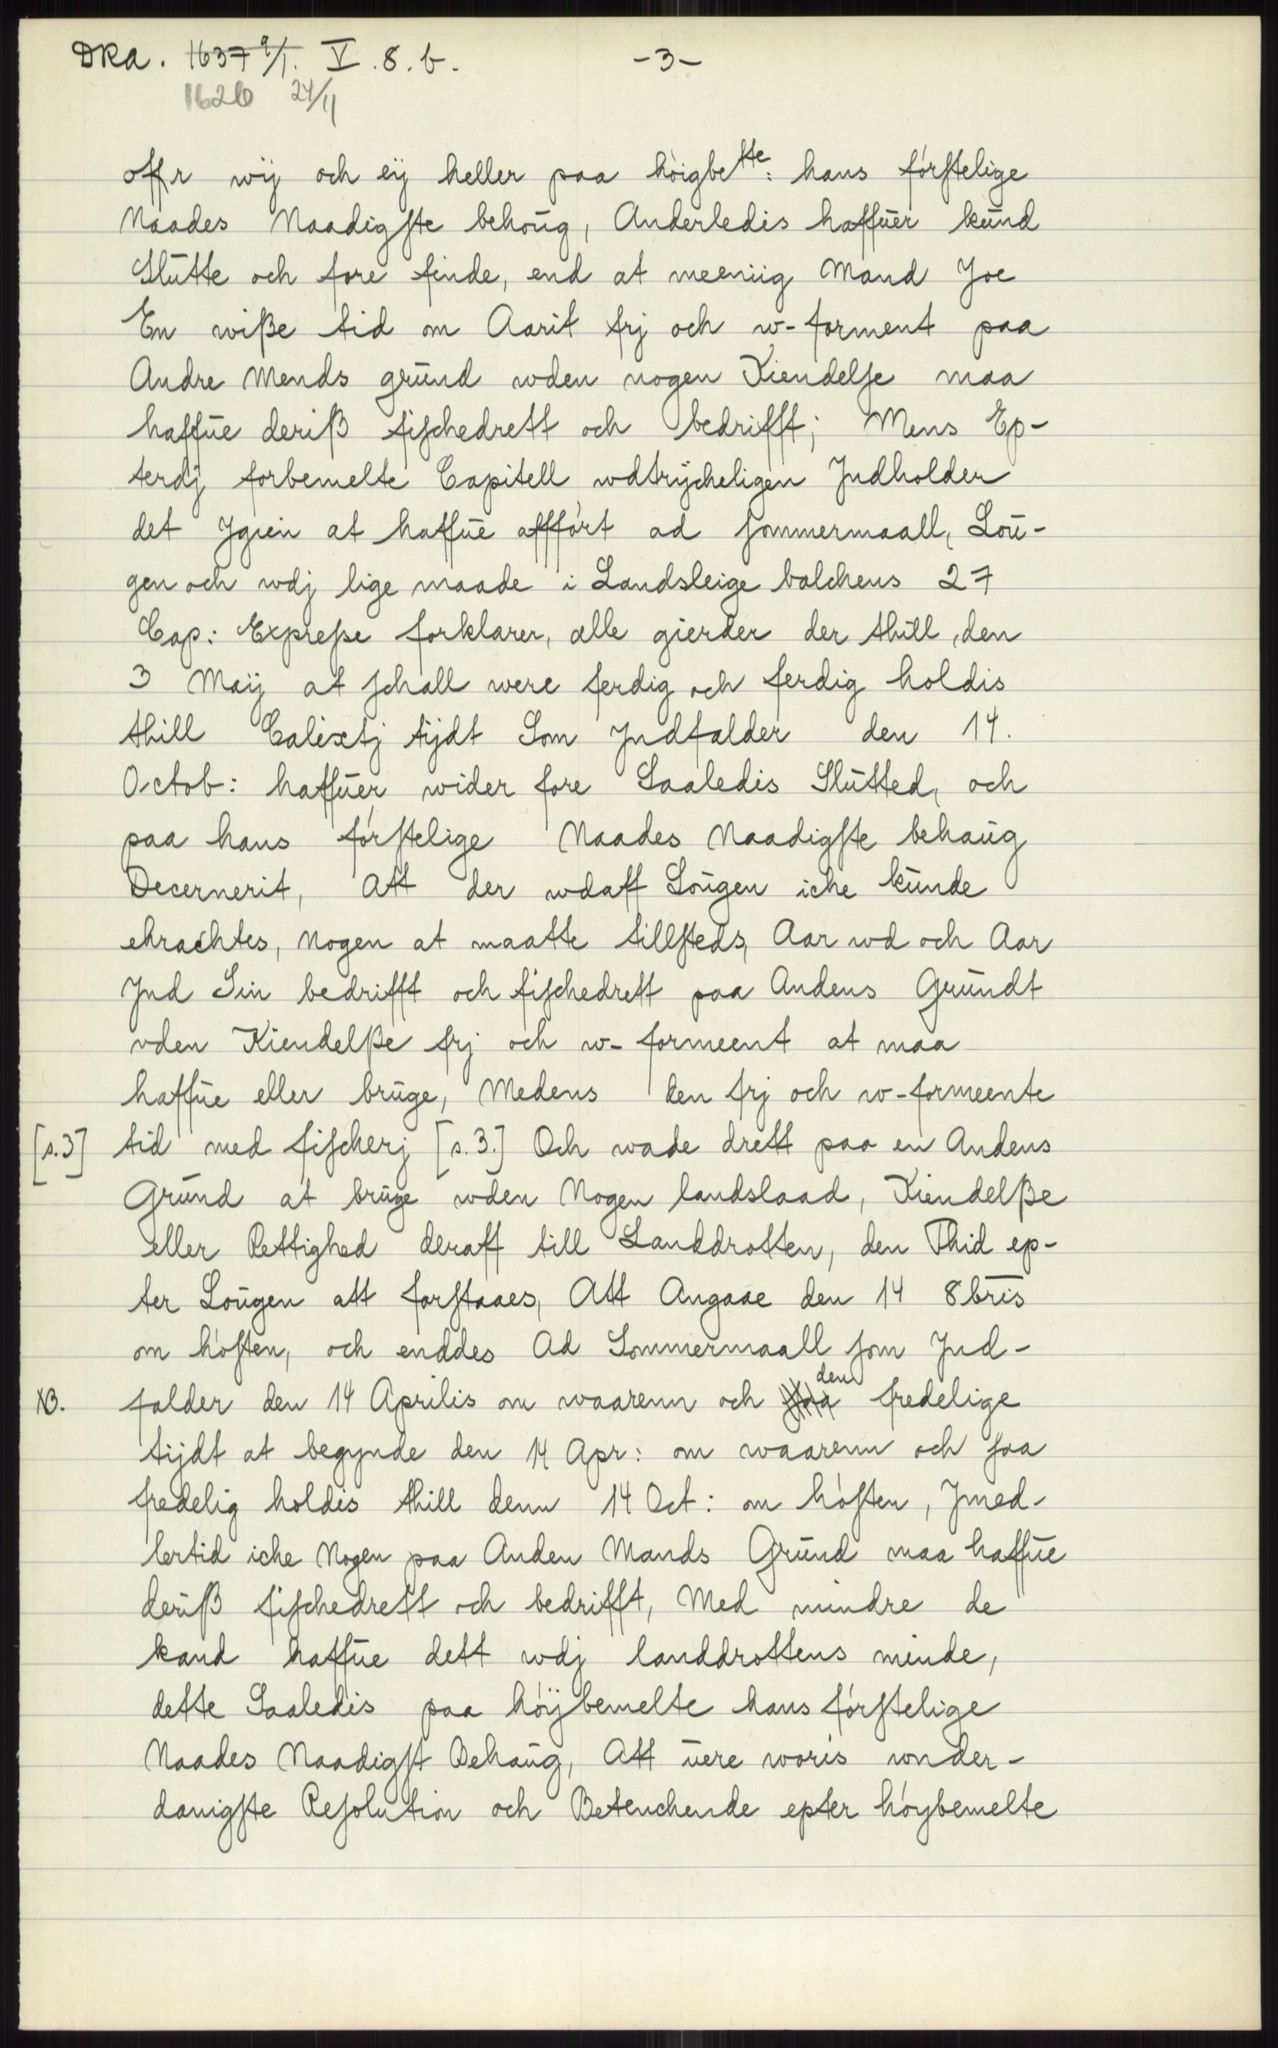 DRa. 1637 9/1. V. 8. b. -3-
1620 24/11
offr wij och eij heller paa höigbe^tte: hans förstelige
Naades Naadigste behoug, Anderledis haffuer kund
Slutte och fore finde, end at meeniig Mand Joe
En wiße tid om Aarit frj och w-forment paa
Andre Mends grund wden nogen Kiendelse maa
haffue deriß fischedrett och bedrifft; Mens Ep-
terdj forbemelte Capitell wdtrycheligen Jndholder
det Jgien at haffue affført ad sommermaall, Lou-
gen och wdj lige maade i Landsleige balchens 27
Cap: Exprese forklarer, alle gierder der thill, den
3 Maij at schall were ferdig och ferdig holdis
thill Calixtj tijdt Som Jndfalder den 14.
Octob: haffuer wider fore Saaledis Slutted, och
paa hans förstelige Naades Naadigste behaug
Decernerit, Att der wdaff Lougen iche kunde
ehrachtes, Nogen at maatte tillsteds, Aar wd och Aar
Jnd Sin bedrifft och fischedrett paa Andens Grundt
vden Kiendelße frj och w-formeent at maa
haffue eller bruge, Medens den frj och w-formeente
[s.3] tid med fischerj [s.3.] Och wade drett paa en Andens
Grund at bruge wden Nogen landslaad, Kiendelße
eller Rettighed deraff till Landdrotten, den Thid ep-
ter Lougen att forstaaes, Att Angaae den 14 8bris
om høsten, och enddes Ad Sommermaall som Jnd-
NB. falder den 14 Aprilis om waarenn och den fredelige
tijdt at begynde den 14 Apr: om waarenn och saa
fredelig holdis thill denn 14 Oct: om høsten, Jmed-
lertid iche Nogen paa Anden Mands Grund maa haffue
deriß fischedrett och bedrifft, Med mindre de
kand haffue dett wdj landdrottens minde,
dette Saaledis paa höijbemelte hans förstelige
Naades Naadigst Behaug, Att uere woris wnder-
danigste Resolution och Betenchende epter höybemelte